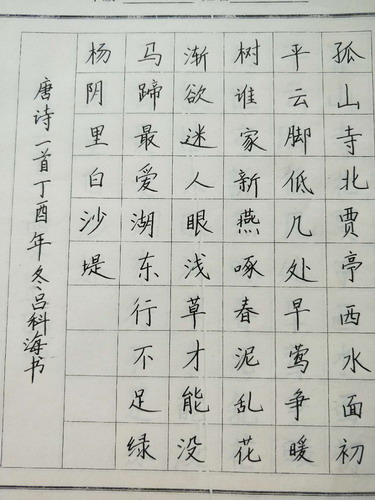 孤山寺北贾亭西水面初
平云脚低几处早莺争暖
树谁家新燕啄春泥乱花
渐欲迷人眼浅草才能没
马蹄最爱湖东行不足绿
杨阴里白沙堤
唐诗一首丁酉年冬吕科海书